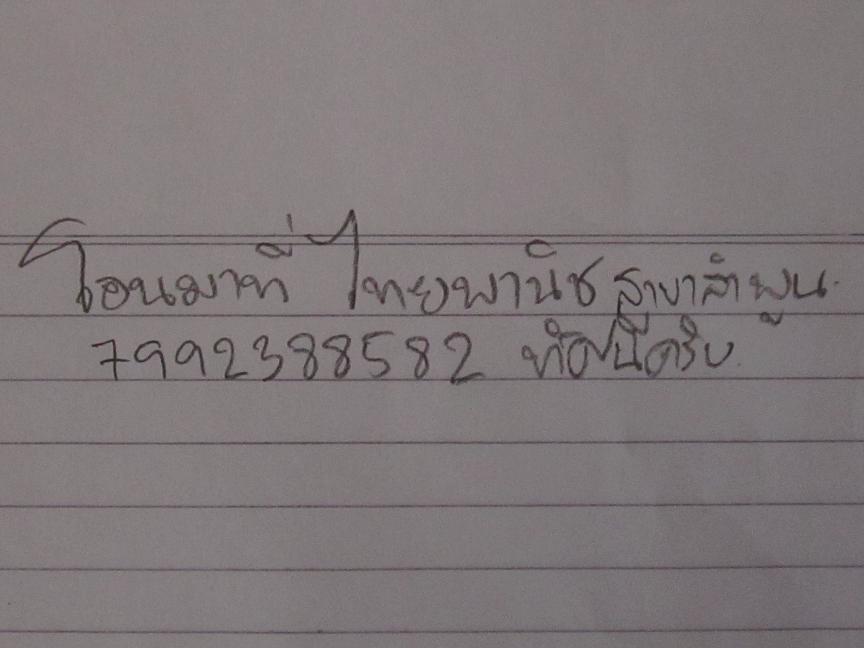 โอนมาที่ ไทยพานิช สาขาลำพูน
7992388582 ทัศนีครับ